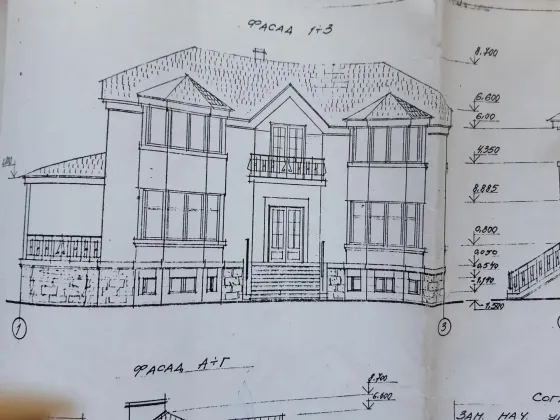 ФАСАД 1÷3
8.700
6.600
6.100
4.350
3.885
0.800
0.050
-0.540
-1.140
-1.500
1
3
ФАСАД А÷Г
8.700
6.600
СОГ
ЗАМ. НАЧ. У